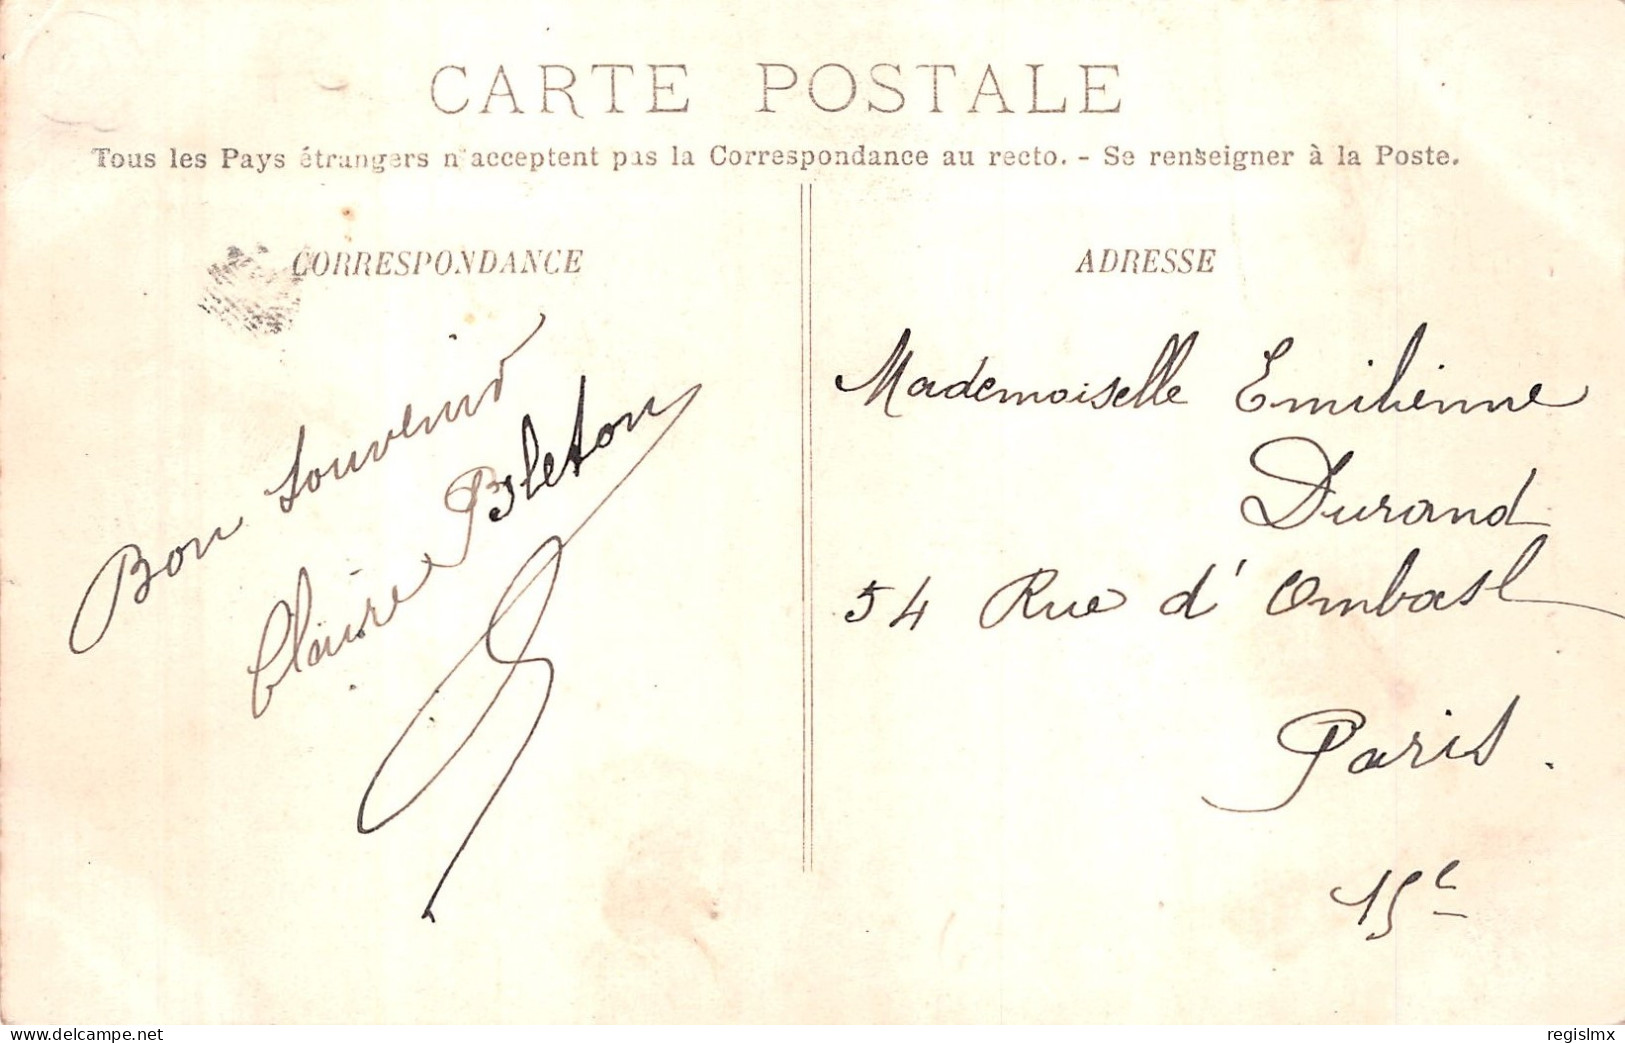 CARTE POSTALE
Tous les Pays étrangers n'acceptent pas la Correspondance au recto. - Se renseigner à la Poste.
CORRESPONDANCE
Bon souvenir
Claire Bleton
ADRESSE
Mademoiselle Emilienne
Durand
54 Rue d'
Paris.
15e
delcampe.net
regislmx